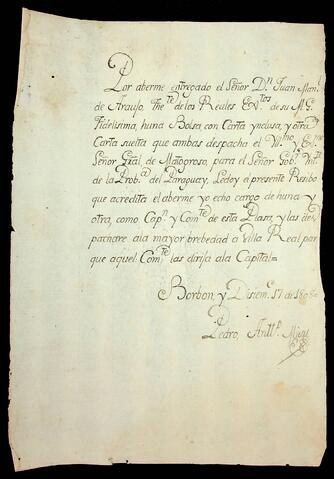 Por aberme entregado el Señor Dn. Juan Manl.
de Araujo, The.te de los Reales Ex.tos de su M.G.
Fidelisima, huna Bolsa con Carta ynclusa, y otra
Carta suelta que ambas despacha el Yl.mo y Ex.
Señor Gral. de Matogroso, para el Señor Gob.r Yn.te
de la Prob.a del Paraguay, Ledoy el presente Resibo
que acredita el aberme yo echo cargo de huna y
otra, como Cap.n y Com.te de esta Plasa, y las des
pachare ala mayor brebedad a Villa Real par
que aquel Com.te las dirija ala Capital=
Borbon, y Disiem.e 17 de
Pedro, Ant.o